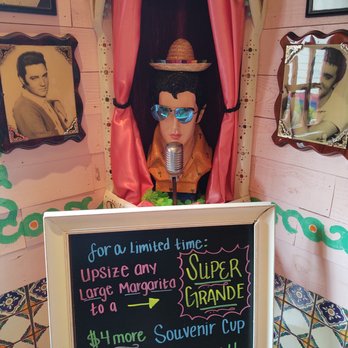 for a limited time:
UPSIZE ANY
Large Margarita
to a
SUPER
GRANDE
$4 more Souvenir Cup